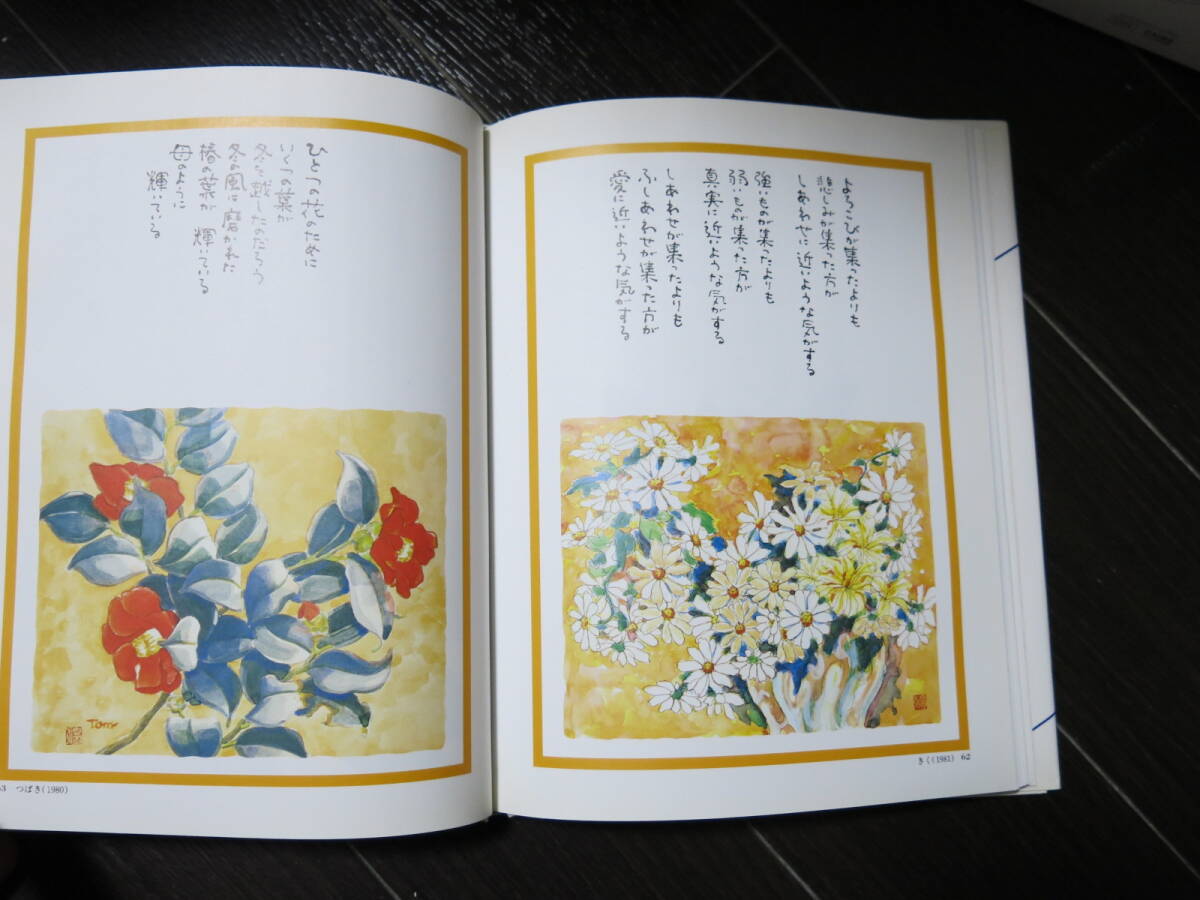 よろこびが集ったよりも
悲しみが集った方が
しあわせに近いような気がする
強いものが集ったよりも
弱いものが集った方が
真実に近いような気がする
しあわせが集ったよりも
ふしあわせが集った方が
愛に近いような気がする
きく(1981) 62
ひとつの花のために
いくつの葉が
冬を越したのだろう
冬の風に磨かれた
椿の葉が 輝いている
母のように
輝いている
Tomy
63 つばき(1980)